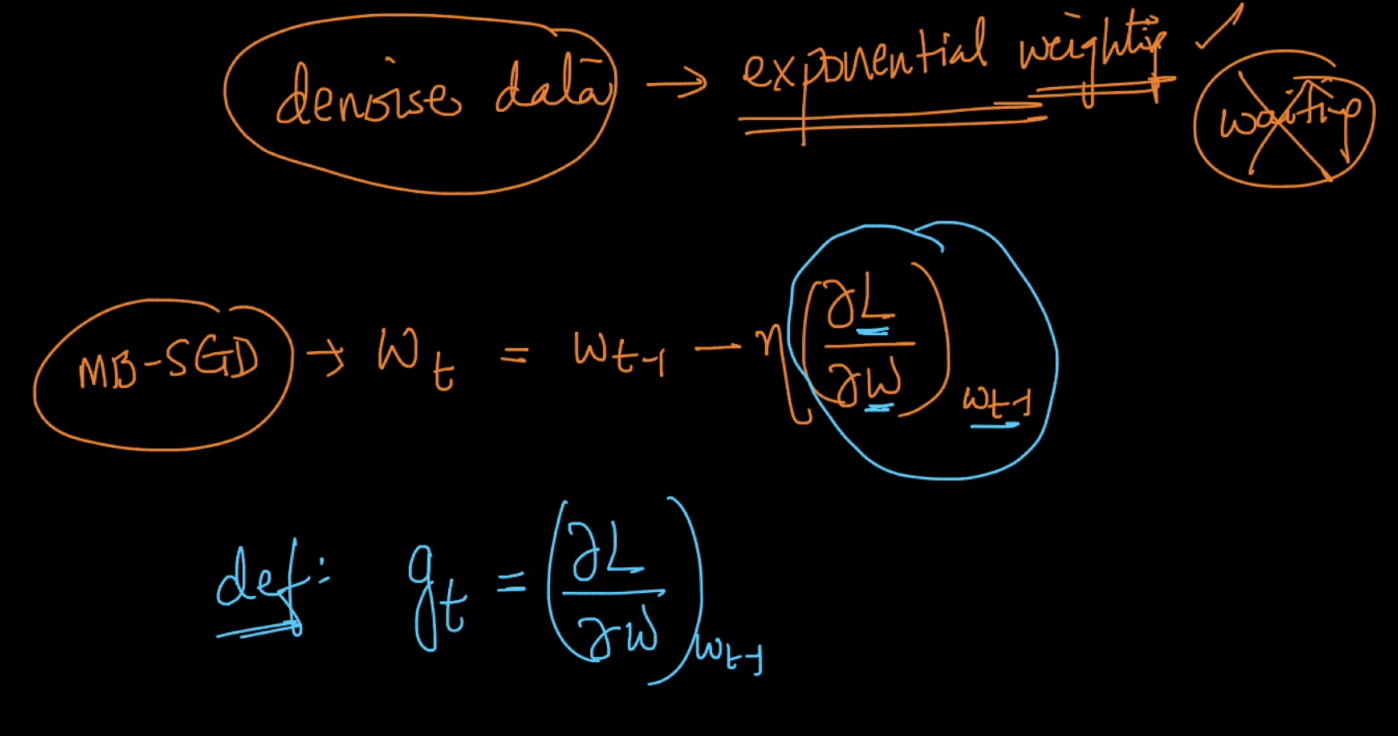 denoise data → exponential weighting ✓
waiting
MB-SGD → W_t = W_{t-1} - η(∂L/∂W)_{W_{t-1}}
def: g_t = (∂L/∂W)_{W_{t-1}}